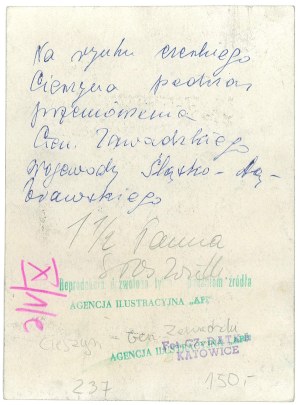 Na rynku czeskiego
Cieszyna podczas
przemówienia
Gen. Zawadzkiego
Wojewody Śląsko-Dą-
browskiego
1 1/2
Reprodukcja dozwolona źródła
AGENCJA ILUSTRACYJNA „API"
X/1/2
Cieszyn - Gen Zawadzki
AGENCJA ILUSTRACYJNA „API"
Fot. CZ. DATKA
KATOWICE
237
150.-